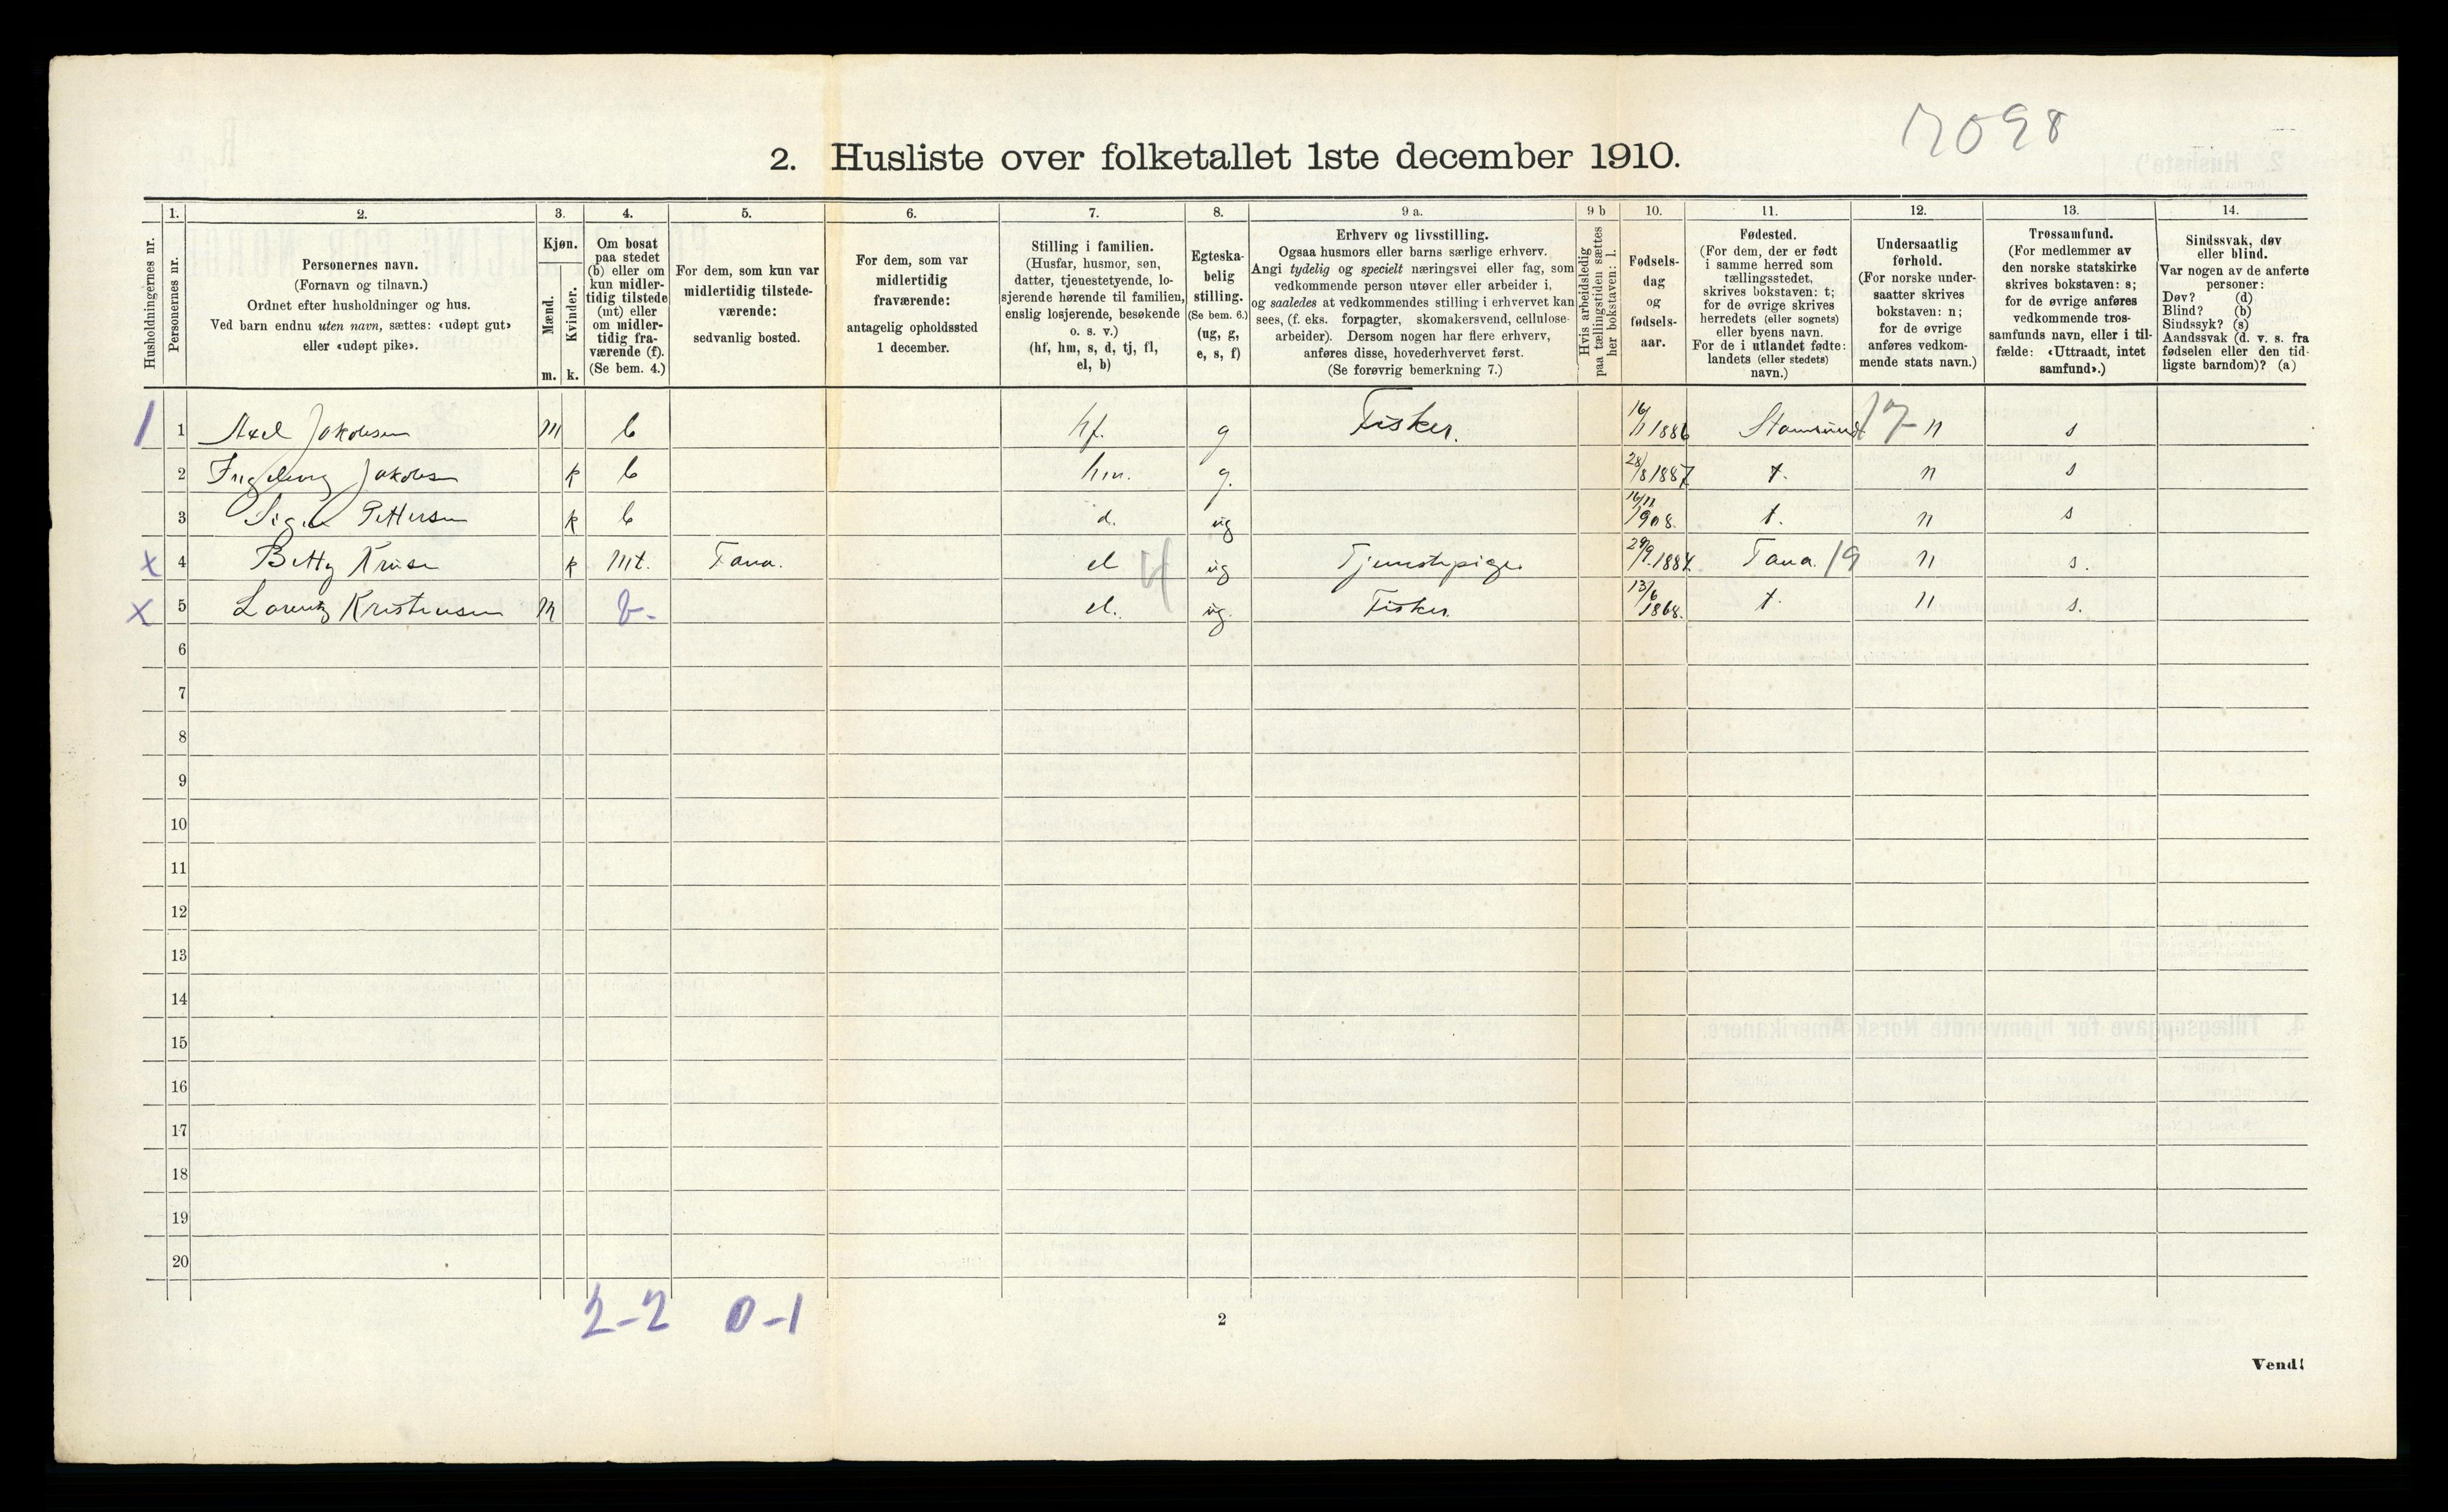 2098
2. Husliste over folketallet 1ste december 1910.
1. 2. 3. 4. 5. 6. 7. 8. 9 a. 9 b 10. 11. 12. 13. 14.
Husholdningernes nr.
Personernes nr.
Personernes navn.
(Fornavn og tilnavn.)
Ordnet efter husholdninger og hus.
Ved barn endnu uten navn, sættes: «udøpt gut»
eller «udøpt pike».
Kjøn.
Mænd.
Kvinder.
m. k.
Om bosat
paa stedet
(b) eller om
kun midler-
tidig tilstede
(mt) eller
om midler-
tidig fra-
værende (f).
(Se bem. 4.)
For dem, som kun var
midlertidig tilstede-
værende:
sedvanlig bosted.
For dem, som var
midlertidig
fraværende:
antagelig opholdssted
1 december.
Stilling i familien.
(Husfar, husmor, søn,
datter, tjenestetyende, lo-
sjerende hørende til familien,
enslig losjerende, besøkende
o. s. v.)
(hf, hm, s, d, tj, fl,
el, b)
Egteska-
belig
stilling.
(Se bem. 6.)
(ug, g,
e, s, f)
Erhverv og livsstilling.
Ogsaa husmors eller barns særlige erhverv.
Angi tydelig og specielt næringsvei eller fag, som
vedkommende person utøver eller arbeider i,
og saaledes at vedkommendes stilling i erhvervet kan
sees, (f. eks. forpagter, skomakersvend, cellulose-
arbeider). Dersom nogen har flere erhverv,
anføres disse, hovederhvervet først.
(Se forøvrig bemerkning 7.)
Hvis arbeidsledig
paa tællingstiden sættes
her bokstaven: l.
Fødsels-
dag
og
fødsels-
aar.
Fødested.
(For dem, der er født
i samme herred som
tællingsstedet,
skrives bokstaven: t;
for de øvrige skrives
herredets (eller sognets)
eller byens navn.
For de i utlandet fødte:
landets (eller stedets)
navn.)
Undersaatlig
forhold.
(For norske under-
saatter skrives
bokstaven: n;
for de øvrige
anføres vedkom-
mende stats navn.)
Trossamfund.
(For medlemmer av
den norske statskirke
skrives bokstaven: s;
for de øvrige anføres
vedkommende tros-
samfunds navn, eller i til-
fælde: «Uttraadt, intet
samfund».)
Sindssvak, døv
eller blind.
Var nogen av de anførte
personer:
Døv? (d)
Blind? (b)
Sindssyk? (s)
Aandssvak (d. v. s. fra
fødselen eller den tid-
ligste barndom)? (a)
1 1 Axel Jakobsen m b hf. g Fisker. 16/11 1886 Stamsund 17 n s
2 Ingeborg Jakobsen k b hm. g. 28/8 1887 t. n s
3 Signe Pettersen k b d. ug 16/11 1908. t. n s
x 4 Betty Kruse k mt. Tana. el ug Tjenestepige. 29/9 1884. Tana. 19 n s.
x 5 Lorentz Kristensen m b- el. ug. Fisker. 13/6 1868. t. n s.
6
7
8
9
10
11
12
13
14
15
16
17
18
19
20
2-2 0-1
2
Vend!